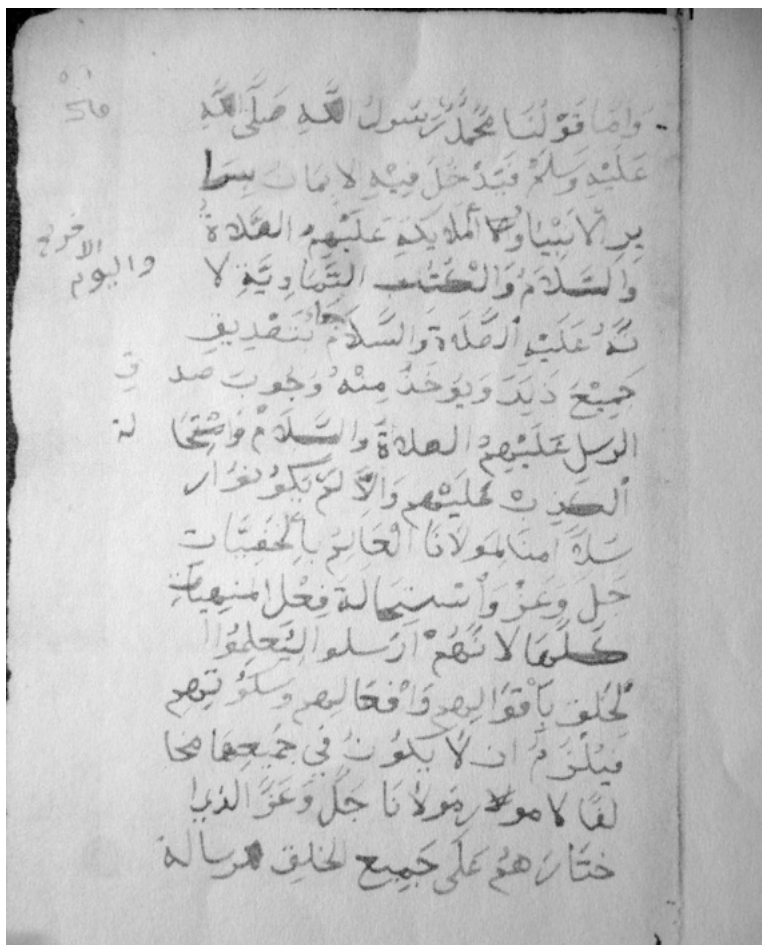 وَامَّا قَوْلُنَا مُحَمَّدٌ رَّسُولُ اللَّهِ صَلَّى اللَّهُ
عَلَيْهِ وَسَلَّمْ فَيَدْخُلُ فِيْهِ لاِيمَان بِسَا
يِرِ الاَنْبِيَاءِ وَالْمَلَايِكَةِ عَلَيْهِمُ الصَّلَاةُ
والاخر
واليوم
وَالسَّلَامُ وَالْكُتُب السَّمَاوِيَّةِ لا
نَّهُ عَلَيْهِ الصَّلَاةُ وَالسَّلَامُ جَاءَ بِتَصْدِيقِ
جَمِيْعِ ذَلِكَ وَيُوخَذُ مِنْهُ وُجُوبُ صد ق
الرسل عَلَيْهِمُ الصلاةُ والسَّلَامْ وَاسْتِحَا لة
الْكَذِبْ عَلَيْهِم وَالاَّ لَمْ يَكُونُوا ار
سَلاً امنَا لِمَوْلَانَا الْعَالِمِ بِالْخَفِيَّات
جَلَّ وَعَزَّ وَاسْتِحَالة فِعْل المنهِيَاتِ
كُلِّهَا لاَنَّهُمْ ارْسلوا لِيُعَلِّمُوا
الْخَلق بِأَقْوَالِهِم وَافْعَالِهِم وَسكُوتِهِم
فَيَلْزَمُ ان لَّا يَكُونَ فِي جَمِيعِهَا مخا
لفًا لامر مَوْلَانَا جَلَّ وَعَزَّ الذي ا
خْتَارَهُمْ عَلَى جَمِيعِ الخلقِ